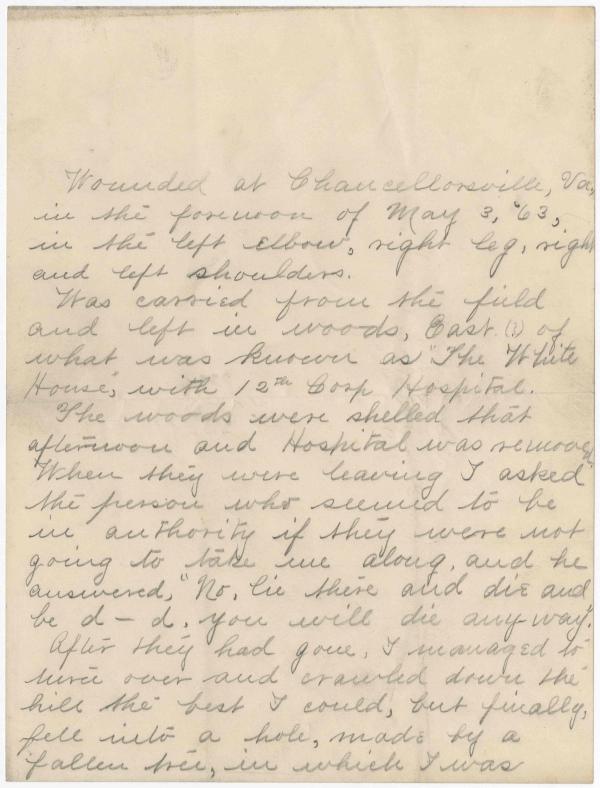 Wounded at Chancellorsville, Va,
in the forenoon of May 3, '63,
in the left elbow, right leg, right
and left shoulders.
Was carried from the field
and left in woods, East (?) of
what was known as "The White
House", with 12th Corp Hospital.
The woods were shelled that
afternoon and Hospital was removed.
When they were leaving I asked
the person who seemed to be
in authority if they were not
going to take me along, and he
answered, "No, lie there and die and
be d-d, you will die any way".
After they had gone, I managed to
turn over and crawled down the
hill the best I could, but finally,
fell into a hole, made by a
fallen tree, in which I was